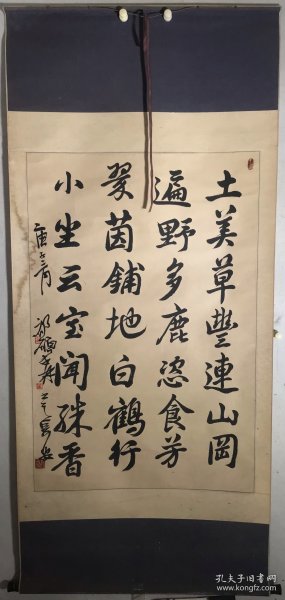 土美草豐連山岡
遍野多鹿恣食芳
翠茵鋪地白鶴行
小坐云室聞殊香
庚三月
孔夫子旧书网
www.kongfz.com